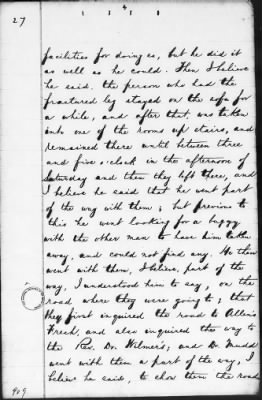 27
facilities for doing so, but he did it
as well as he could. Then I believe
he said, the person who had the
fractured leg stayed on the sofa for
a while, and after that, was taken
into one of the rooms up stairs, and
remained there until between three
and five o'clock in the afternoon of
Saturday and then they left there, and
I believe he said that he went part
of the way with them; but previous to
this he went looking for a buggy
with the other man to have him taken
away, and could not find any. He then
went with them, I believe, part of the
way, I understood him to say, on the
road where they were going to; that
they first inquired the road to Allen's
Fresh, and also inquired the way to
the Rev. Dr. Wilmer's; and Dr. Mudd
went with them a part of the way, I
believe he said, to show them the road